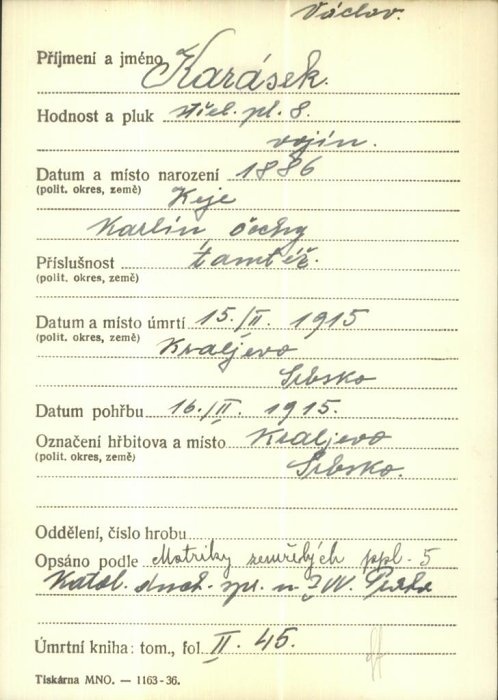 Václav.
Příjmení a jméno Karásek.
Hodnost a pluk střel. pl. 8.
vojín.
Datum a místo narození 1886
(polit. okres, země) Kyje
Karlín Čechy
Příslušnost tamtéž.
(polit. okres, země)
Datum a místo úmrtí 15./II. 1915
(polit. okres, země) Kraljevo
Srbsko
Datum pohřbu 16./II. 1915.
Označení hřbitova a místo Kraljevo
(polit. okres, země) Srbsko.
Oddělení, číslo hrobu
Opsáno podle Matriky zemřelých ppl. 5
Katol. duch. spr. n ZVV. Praha
Úmrtní kniha: tom., fol. II. 45.
Tiskárna MNO. — 1163-36.